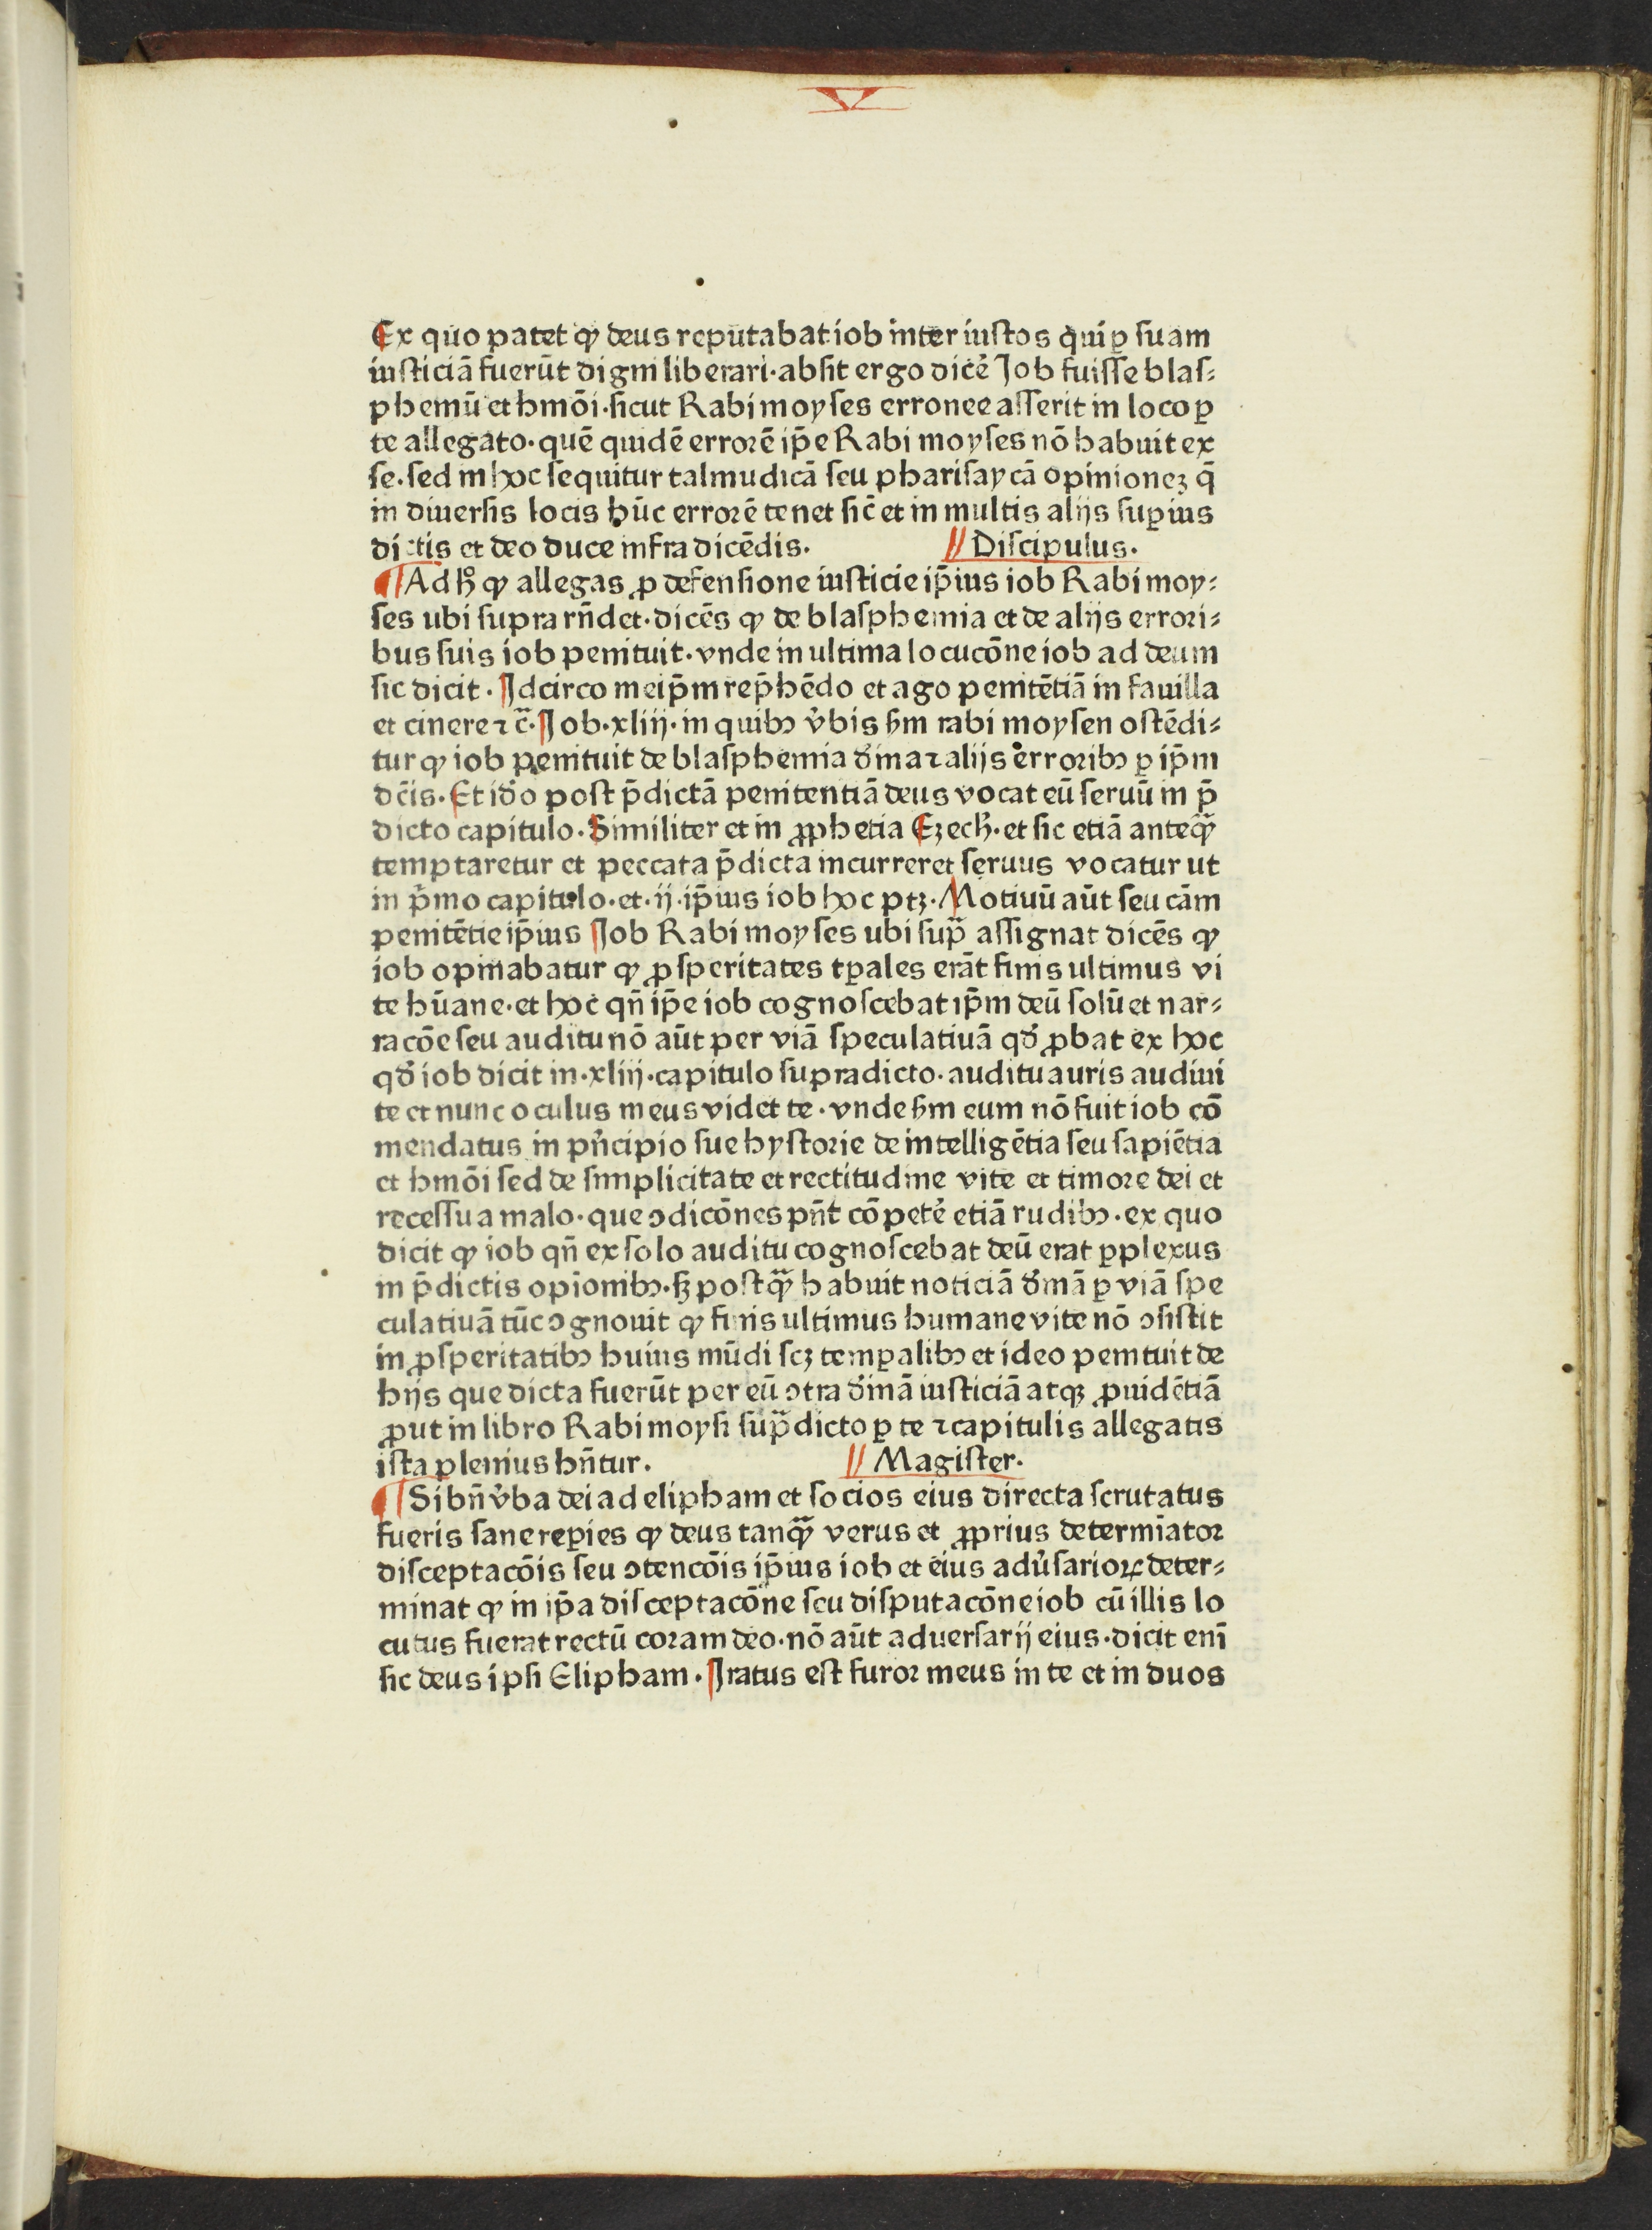 V
Ex quo patet ꝙ deus reputabat iob inter iustos qui ꝑ suam
iusticiā fuerūt digni liberari·absit ergo dicẽ Job fuisse blas⸗
phemū et hmōi·sicut Rabi moyses erronee asserit in loco ꝑ
te allegato·quē quidē errorē ip̄e Rabi moyses nō habuit ex
se·sed in hoc sequitur talmudicā seu pharisaycā opinionez q̄
in diuersis locis hūc errorē tenet sic̄ et in multis alijs suꝑius
dictis et deo duce infra dicēdis. // Discipulus.
¶ Ad hͦ ꝙ allegas ꝓ defensione iusticie ip̄ius iob Rabi moy⸗
ses ubi supra rn̄det·dicēs ꝙ de blasphemia et de alijs errori⸗
bus suis iob penituit·vnde in ultima locucōne iob ad deum
sic dicit·Jdcirco meip̄m rep̄hēdo et ago penitētiā in fauilla
et cinere ⁊ c̄·Job·xlij·in quibꝫ v̓bis s̄m rabi moysen ostēdi⸗
tur ꝙ iob penituit de blasphemia d̓ina ⁊ alijs erroribꝫ ꝑ ip̄m
dc̄is·Et id̓o post p̄dictā penitentiā deus vocat eū seruū in p̄
dicto capitulo·Similiter et in ꝓphetia Ezech̄·et sic etiā anteq̄ꝫ
temptaretur et peccata p̄dicta incurreret seruus vocatur ut
in p̓mo capitulo·et·ij·ip̄ius iob hoc ptꝫ·Motiuū aūt seu cām
penitētie ip̄ius Job Rabi moyses ubi sup̄ assignat dicēs ꝙ
iob opinabatur ꝙ ꝓsperitates tꝑales erāt finis ultimus vi
te hūane·et hoc qn̄ ip̄e iob cognoscebat ip̄m deū solū et nar⸗
racōe seu auditu nō aūt per viā speculatiuā qd̓ ꝓbat ex hoc
qd̓ iob dicit in·xlij·capitulo supradicto·auditu auris audiui
te et nunc oculus meus videt te·vnde s̄m eum nō fuit iob cō
mendatus in pn̓cipio sue hystorie de intelligētia seu sapiētia
et hmōi sed de simplicitate et rectitudine vite et timore dei et
recessu a malo·que ↄdicōnes pn̄t cōpetẽ etiā rudibꝫ·ex quo
dicit ꝙ iob qn̄ ex solo auditu cognoscebat deū erat ꝑplexus
in p̄dictis opīonibꝫ·sꝫ postq̄ꝫ habuit noticiā d̓inā ꝑ viā spe
culatiuā tūc ↄgnouit ꝙ finis ultimus humane vite nō ↄsistit
in ꝓsperitatibꝫ huius mūdi scꝫ temꝑalibꝫ et ideo penituit de
hijs que dicta fuerūt per eū ↄtra d̓inā iusticiā atqꝫ ꝓuidētiā
ꝓut in libro Rabi moysi sup̄dicto ꝑ te ⁊ capitulis allegatis
ista plenius hn̄tur. // Magister.
¶ Si bn̄ v̓ba dei ad elipham et socios eius directa scrutatus
fueris sane reꝑies ꝙ deus tanq̄ꝫ verus et ꝓprius determīator
disceptacōis seu ↄtencōis ip̄ius iob et eius adu̓sarioꝝ deter⸗
minat ꝙ in ip̄a disceptacōne seu disputacōne iob cū illis lo
cutus fuerat rectū coram deo·nō aūt aduersarij eius·dicit enī
sic deus ipsi Elipham·Jratus est furor meus in te et in duos